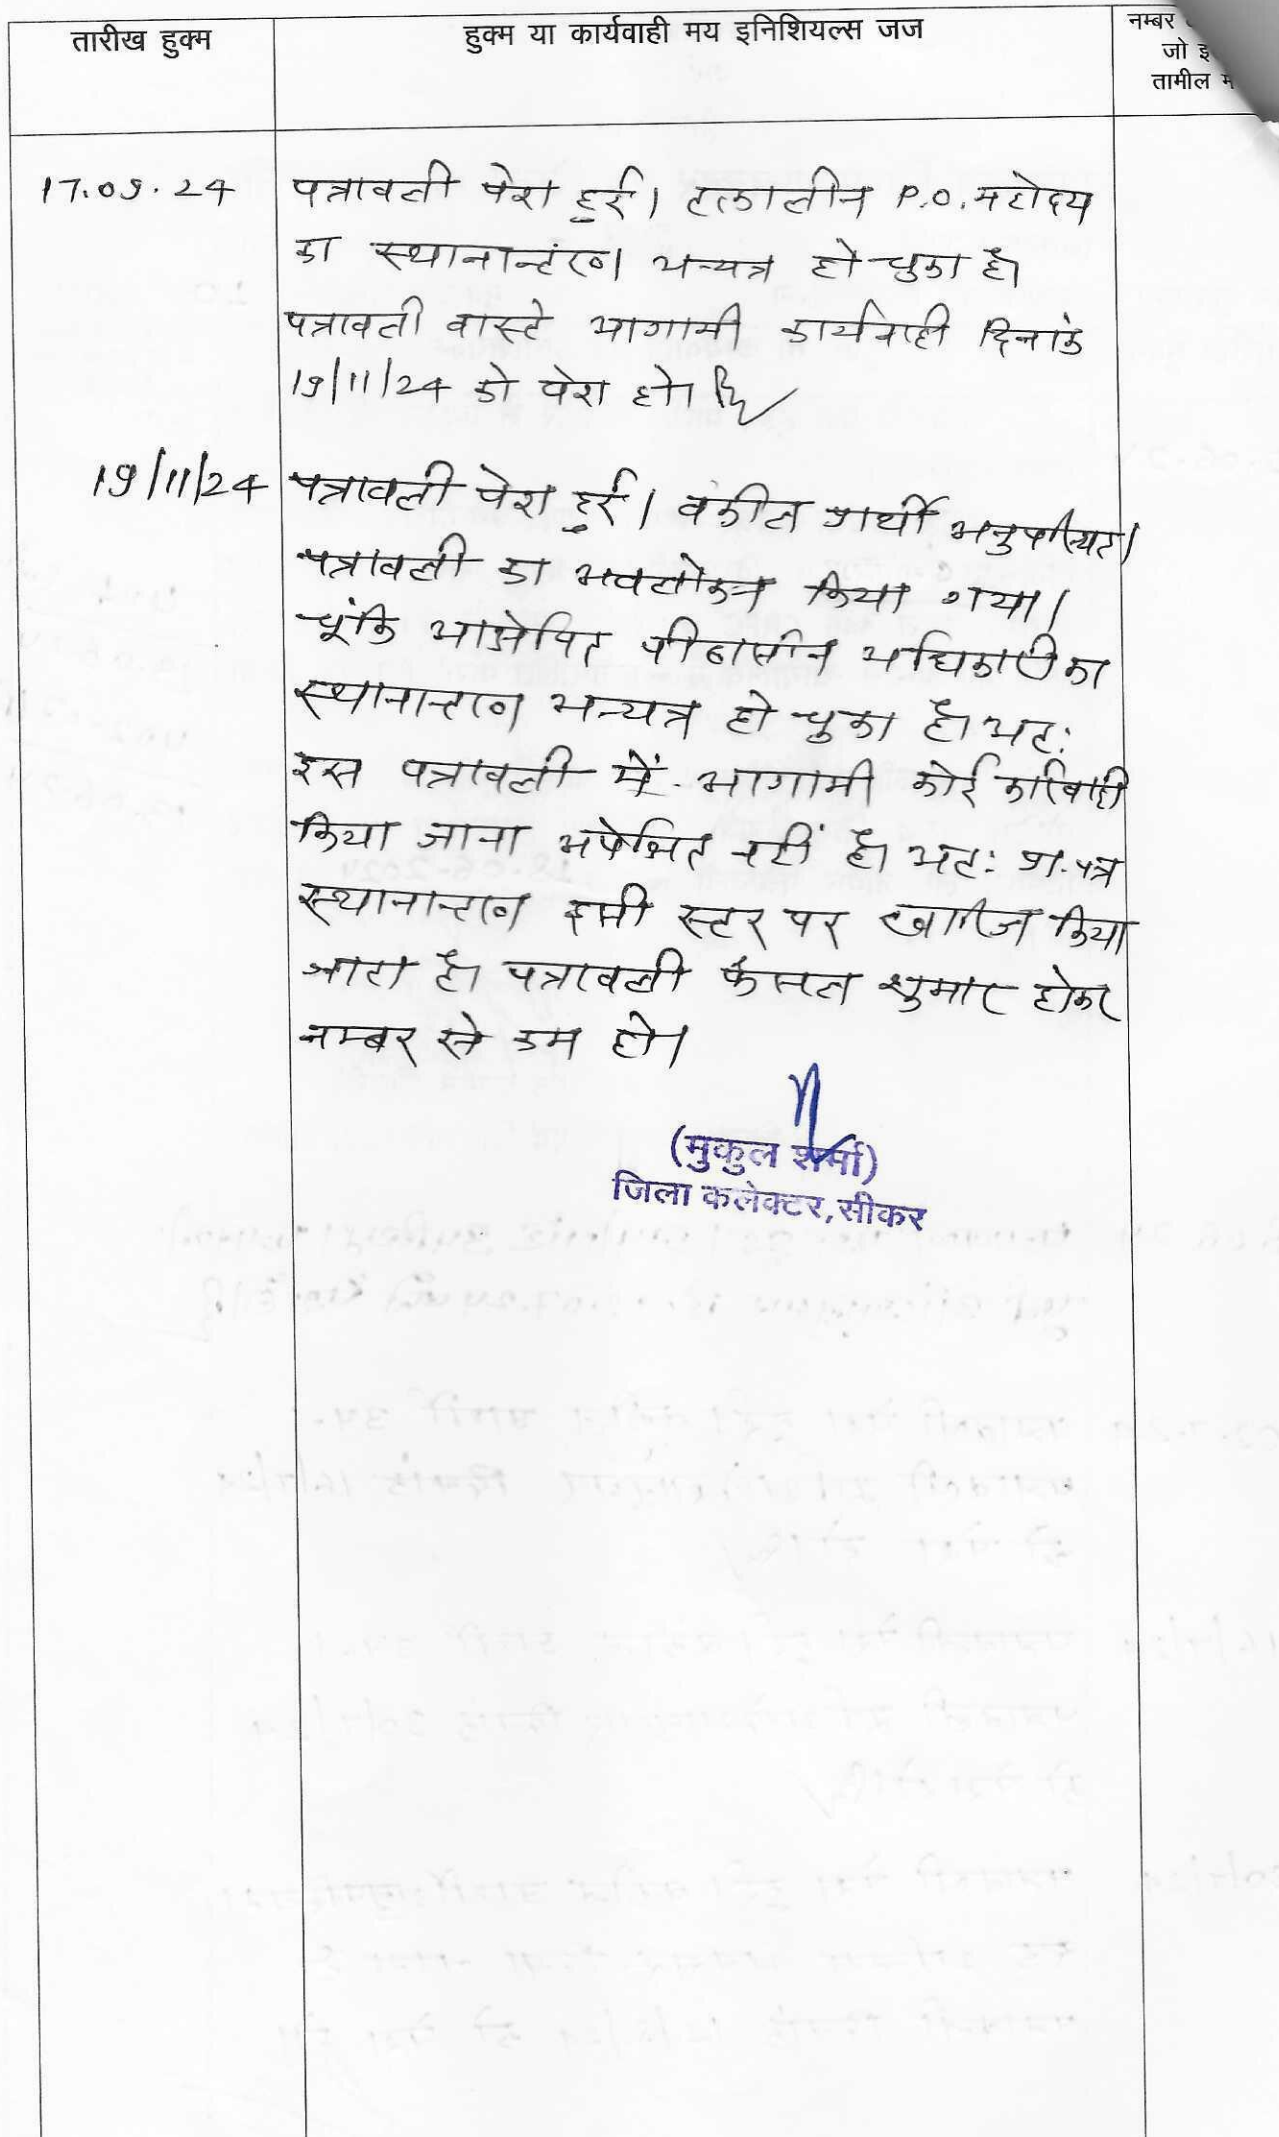 तारीख हुक्म
हुक्म या कार्यवाही मय इनिशियल्स जज
नम्बर
जो इ
तामील म
17.09.24
पत्रावली पेश हुई। तत्कालीन P.O. महोदय
का स्थानान्तरण अन्यत्र हो चुका है।
पत्रावली वास्ते आगामी कार्यवाही दिनांक
19/11/24 को पेश हो।
19/11/24
पत्रावली पेश हुई। वकील प्रार्थी अनुपस्थित।
पत्रावली का अवलोकन किया गया।
चूंकि आक्षेपित पीठासीन अधिकारी का
स्थानान्तरण अन्यत्र हो चुका है। अतः
इस पत्रावली में आगामी कोई कार्यवाही
किया जाना अपेक्षित नहीं है। अतः प्रा. पत्र
स्थानान्तरण इसी स्तर पर खारिज किया
जाता है। पत्रावली फैसल शुमार होकर
नम्बर से कम हो।
(मुकुल शर्मा)
जिला कलेक्टर, सीकर